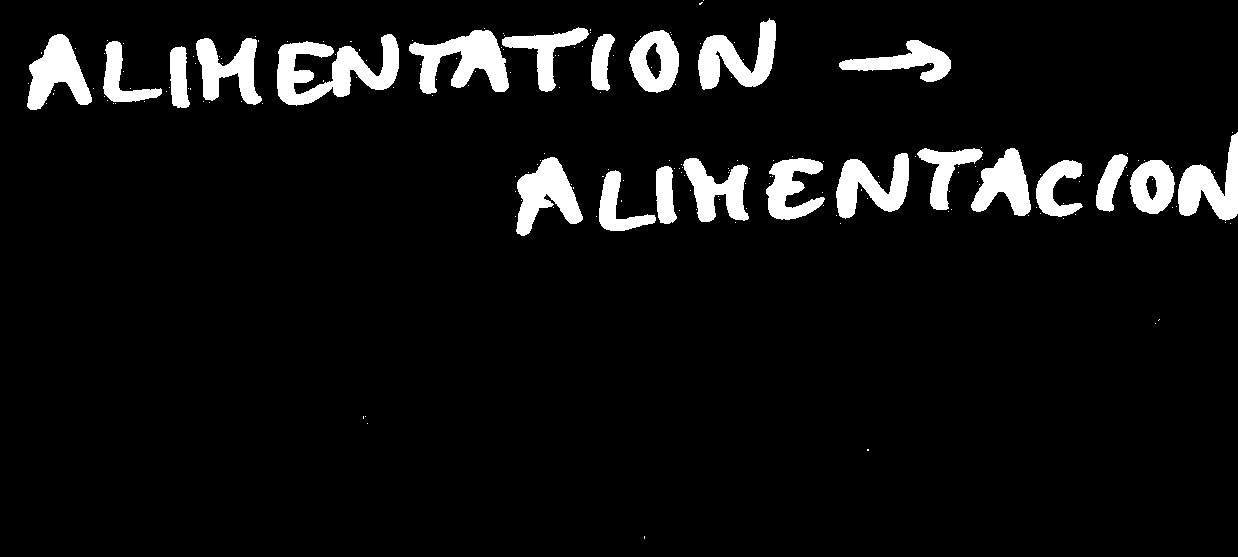 ALIMENTATION →
ALIMENTACION